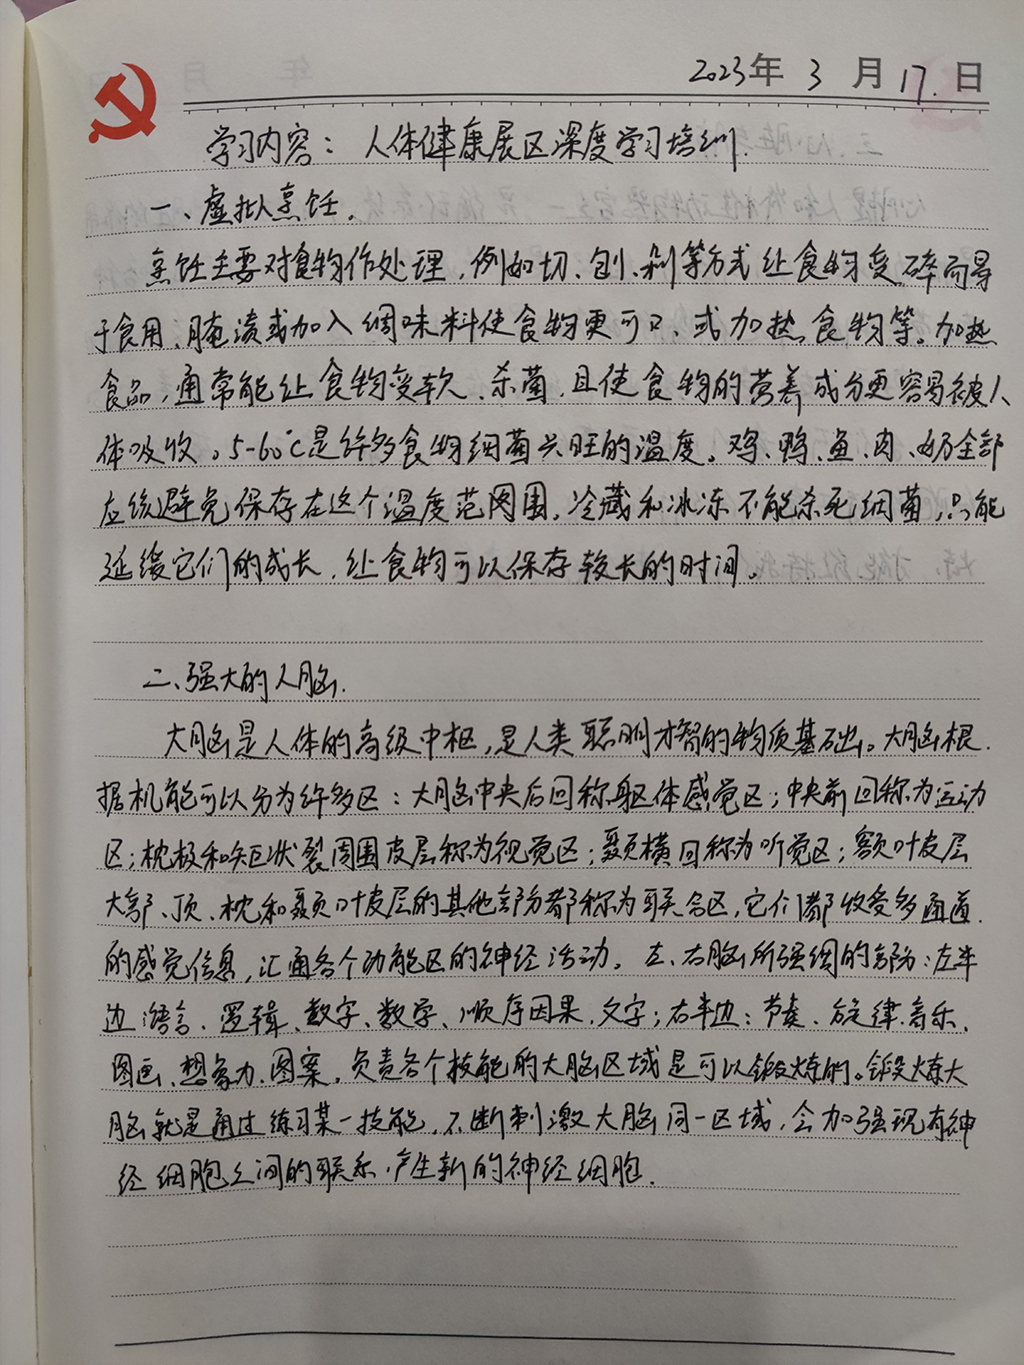 2023年 3 月 17 日
学习内容：人体健康展区深度学习培训.
一、虚拟烹饪.
烹饪主要对食物作处理，例如切、刨、剁等方式让食物变碎而易
于食用、腌渍或加入调味料使食物更可口、或加热食物等。加热
食品，通常能让食物变软、杀菌，且使食物的营养成分更容易被人
体吸收。5-60℃是许多食物细菌兴旺的温度。鸡、鸭、鱼、肉、奶全部
应该避免保存在这个温度范围，冷藏和冰冻不能杀死细菌，只能
延缓它们的成长，让食物可以保存较长的时间。
二、强大的人脑.
大脑是人体的高级中枢，是人类聪明才智的物质基础。大脑根
据机能可以分为许多区：大脑中央后回称躯体感觉区；中央前回称为运动
区；枕极和矩状裂周围皮层称为视觉区；颞横回称为听觉区；额叶皮层
大部、顶、枕和颞叶皮层的其他部分都称为联合区，它们都收受多通道
的感觉信息，汇通各个功能区的神经活动。左、右脑所强调的部份：左半
边：语言、逻辑、数字、数学、顺序因果，文字；右半边：节奏、旋律、音乐、
图画、想象力、图案，负责各个技能的大脑区域是可以锻炼的。锻炼大
脑就是通过练习某一技能，不断刺激大脑同一区域，会加强现有神
经细胞之间的联系，产生新的神经细胞.